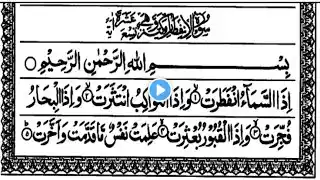 سورة الانفطار مكية وهى تسع عشرة اية
بِسْمِ اللهِ الرَّحْمٰنِ الرَّحِيْمِ ○
اِذَا السَّمَآءُ انْفَطَرَتْ ۙ وَاِذَا الْكَوَاكِبُ انْتَثَرَتْ ۙ وَاِذَا الْبِحَارُ
فُجِّرَتْ ۙ وَاِذَا الْقُبُوْرُ بُعْثِرَتْ ۙ عَلِمَتْ نَفْسٌ مَّا قَدَّمَتْ وَاَخَّرَتْ ۗ